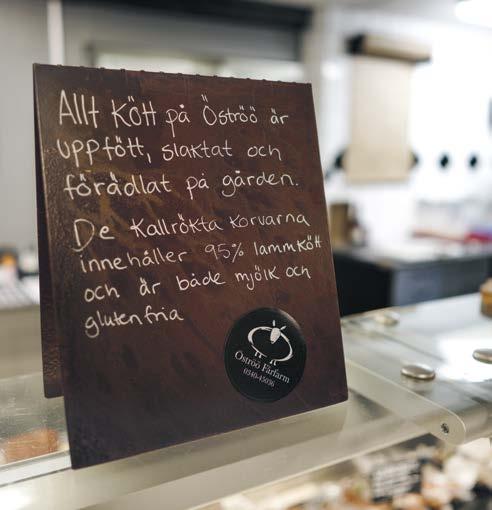 Allt Kött på Öströö är
uppfött, slaktat och
förädlat på gården.
De Kallrökta Korvarna
innehåller 95% lammkött
och är både mjölk och
glutenfria
Öströö Fårfarm
0340-45036